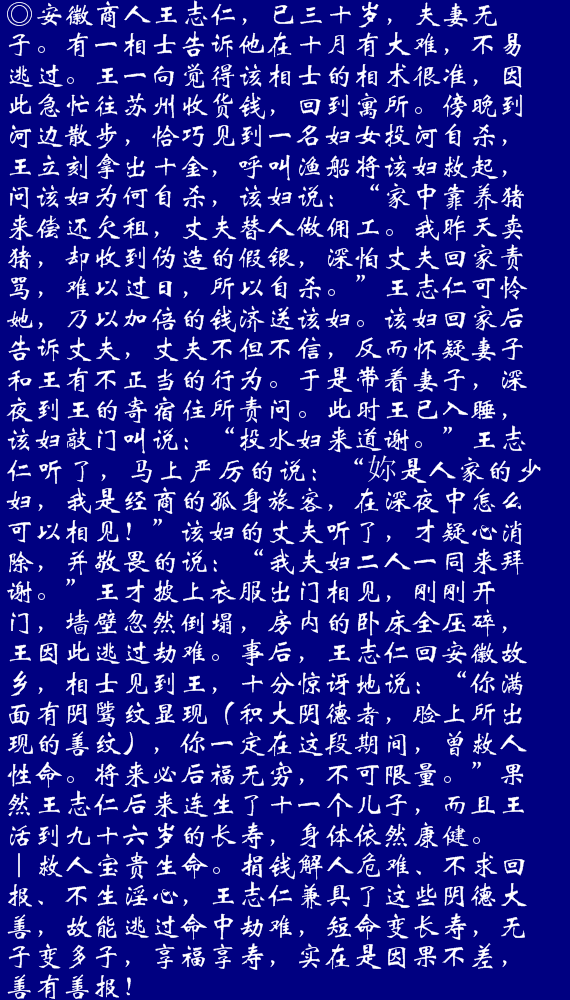 ◎安徽商人王志仁，已三十岁，夫妻无
子。有一相士告诉他在十月有大难，不易
逃过。王一向觉得该相士的相术很准，因
此急忙往苏州收货钱，回到寓所。傍晚到
河边散步，恰巧见到一名妇女投河自杀，
王立刻拿出十金，呼叫渔船将该妇救起，
问该妇为何自杀，该妇说：“家中靠养猪
来偿还欠租，丈夫替人做佣工。我昨天卖
猪，却收到伪造的假银，深怕丈夫回家责
骂，难以过日，所以自杀。”王志仁可怜
她，乃以加倍的钱济送该妇。该妇回家后
告诉丈夫，丈夫不但不信，反而怀疑妻子
和王有不正当的行为。于是带着妻子，深
夜到王的寄宿住所责问。此时王已入睡，
该妇敲门叫说：“投水妇来道谢。”王志
仁听了，马上严厉的说：“妳是人家的少
妇，我是经商的孤身旅客，在深夜中怎么
可以相见！”该妇的丈夫听了，才疑心消
除，并敬畏的说：“我夫妇二人一同来拜
谢。”王才披上衣服出门相见，刚刚开
门，墙壁忽然倒塌，房内的卧床全压碎，
王因此逃过劫难。事后，王志仁回安徽故
乡，相士见到王，十分惊讶地说：“你满
面有阴骘纹显现（积大阴德者，脸上所出
现的善纹），你一定在这段期间，曾救人
性命。将来必后福无穷，不可限量。”果
然王志仁后来连生了十一个儿子，而且王
活到九十六岁的长寿，身体依然康健。
｜救人宝贵生命。捐钱解人危难、不求回
报、不生淫心，王志仁兼具了这些阴德大
善，故能逃过命中劫难，短命变长寿，无
子变多子，享福享寿，实在是因果不差，
善有善报！